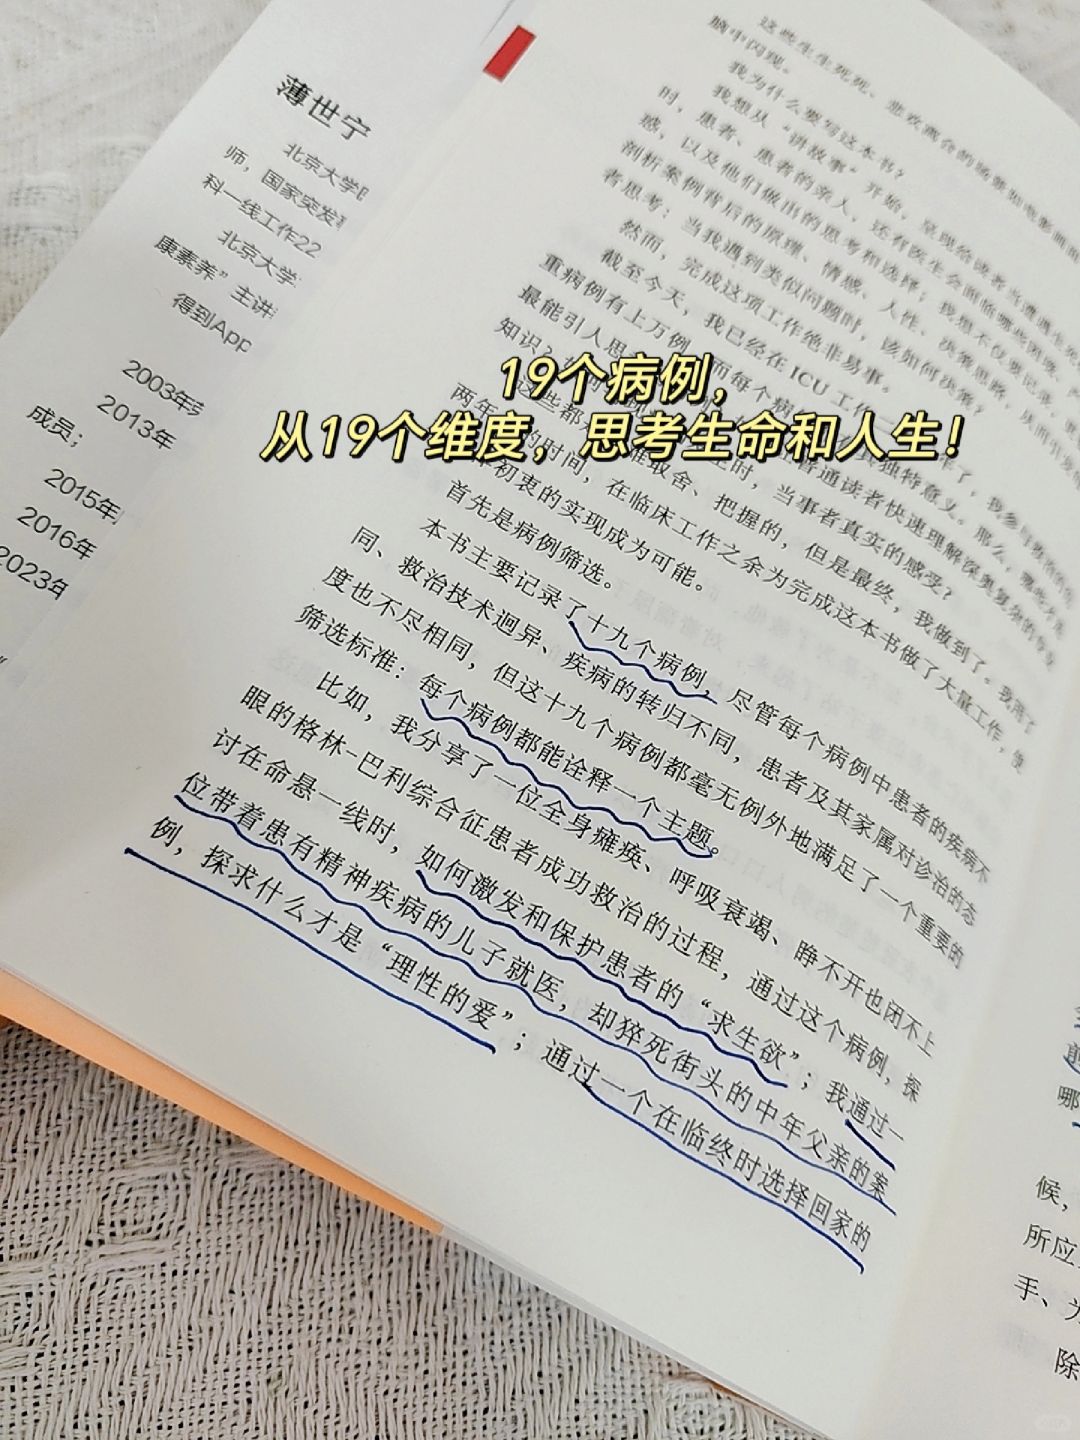 薄世宁
北京大学
师，国家突发
科一线工作22
北京大学
康素养”主讲
得到App
2003年
2013年
成员；
2015年
2016年
2023年
这些生生死死、悲欢离合的场景如电影画面
脑中闪现。
我为什么要写这本书？
我想从“讲故事”开始，呈现给读者当遭遇生死
时，患者、患者的亲人，还有医生会面临哪些困境、
惑，以及他们做出的思考和选择；我想不仅要记录，更
剖析案例背后的原理、情感、人性、决策思路，从而引发
者思考：当我遇到类似问题时，该如何决策？
然而，完成这项工作绝非易事。
截至今天，我已经在 ICU 工作
了，我参与救治的
重病例有上万例，而每个病
独特意义。那么，哪些
最能引人思
普通读者快速理解深奥复杂的专业
知识？如何
时，当事者真实的感受？
这些都
难取舍、把握的，但是最终，我做到了。我用了
两年
的时间，在临床工作之余为完成这本书做了大量工作，使
初衷的实现成为可能。
首先是病例筛选。
本书主要记录了十九个病例，尽管每个病例中患者的疾病不
同、救治技术迥异、疾病的转归不同，患者及其家属对诊治的态
度也不尽相同，但这十九个病例都毫无例外地满足了一个重要的
筛选标准：每个病例都能诠释一个主题。
比如，我分享了一位全身瘫痪、呼吸衰竭、睁不开也闭不上
眼的格林-巴利综合征患者成功救治的过程，通过这个病例，探
讨在命悬一线时，如何激发和保护患者的“求生欲”；我通过一
位带着患有精神疾病的儿子就医，却猝死街头的中年父亲的案
例，探求什么才是“理性的爱”；通过一个在临终时选择回家的
19个病例，
从19个维度，思考生命和人生！
哪
候，
所应
手、为
除